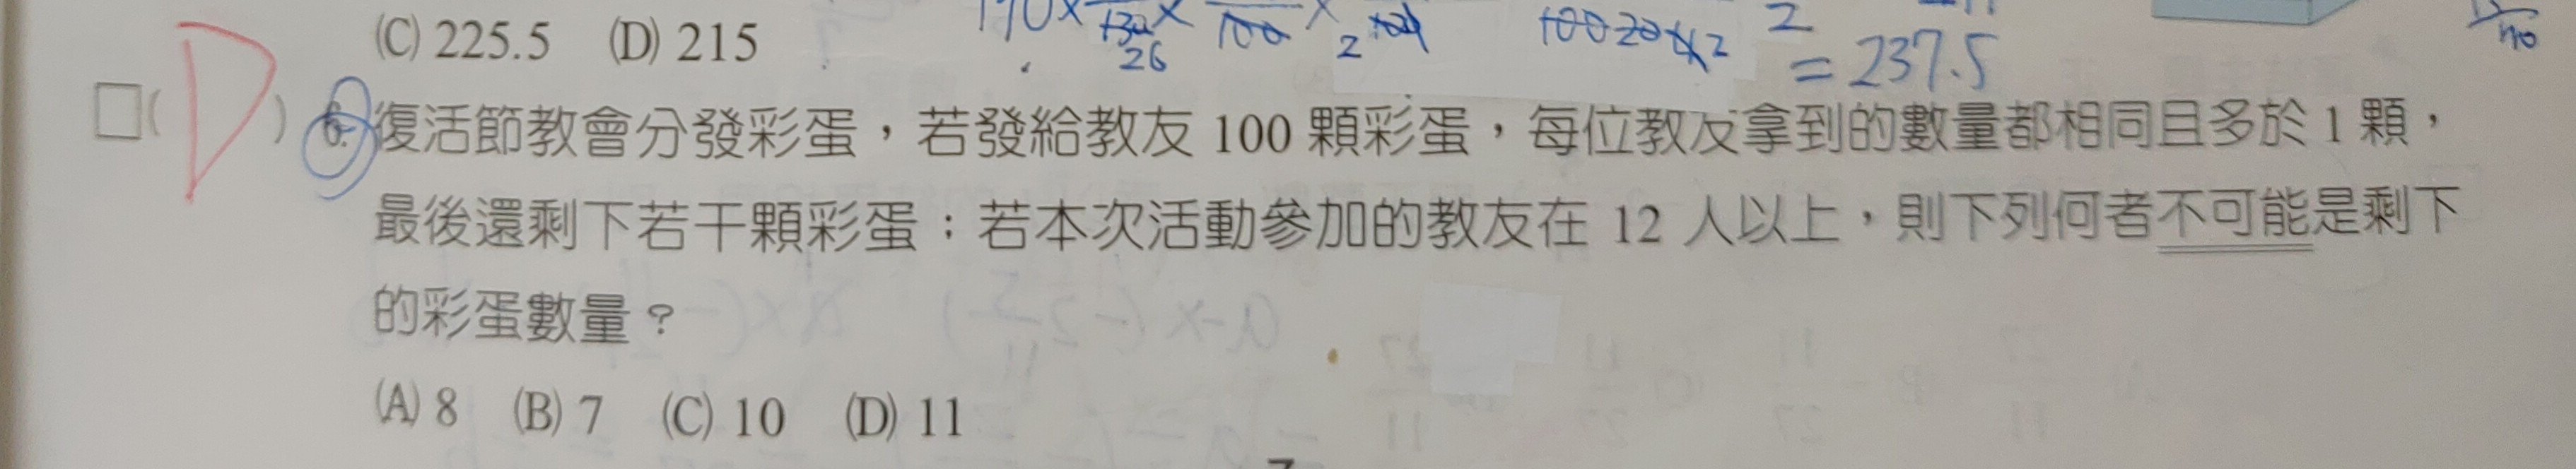 (C) 225.5 (D) 215
2
= 237.5
□( D ) 6. 復活節教會分發彩蛋，若發給教友 100 顆彩蛋，每位教友拿到的數量都相同且多於 1 顆，
最後還剩下若干顆彩蛋；若本次活動參加的教友在 12 人以上，則下列何者不可能是剩下
的彩蛋數量？
(A) 8 (B) 7 (C) 10 (D) 11